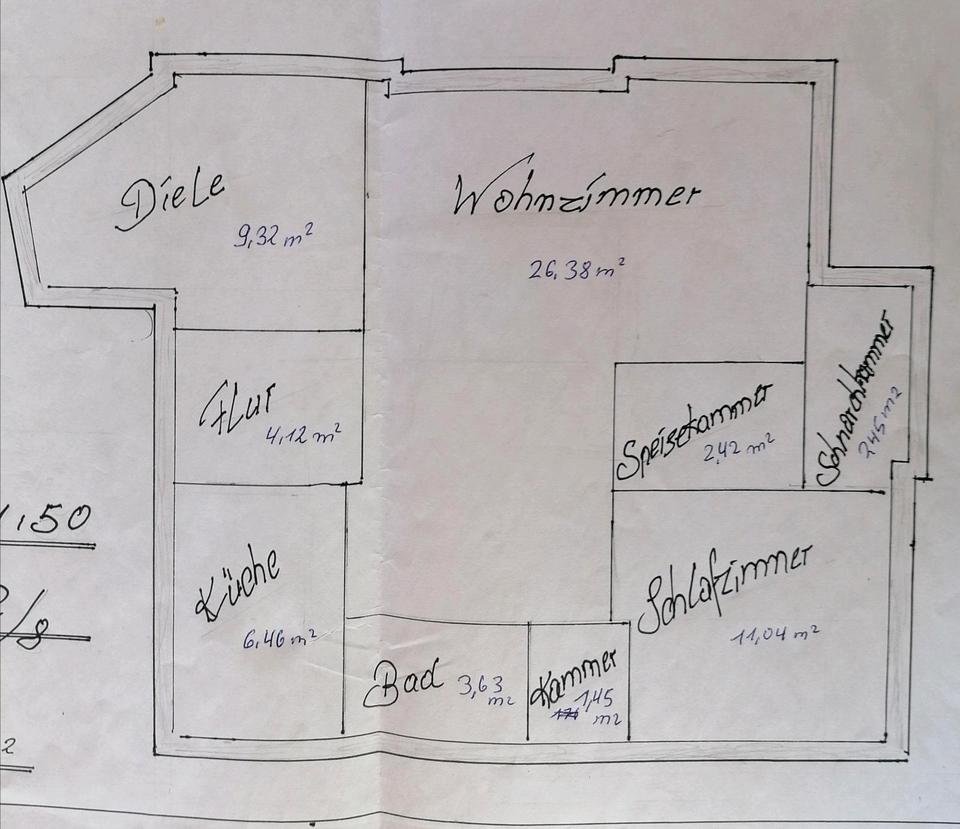 Diele
9,32 m²
Wohnzimmer
26,38 m²
Flur
4,12 m²
Speisekammer
2,42 m²
Schnarchkammer
2,45 m2
1:50
Küche
6,46 m²
Schlafzimmer
11,04 m²
Bad
3,63
m2
Kammer
1,45
m2
/8
2